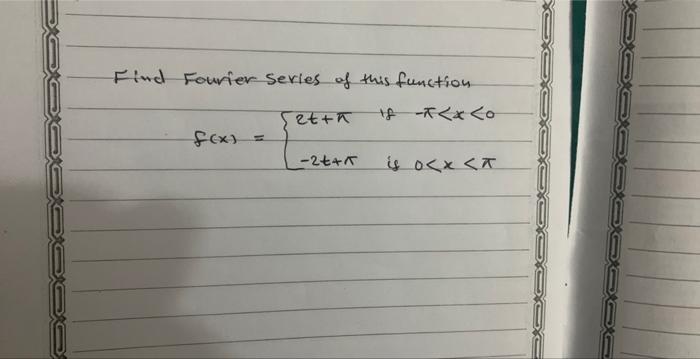 Find Fourier Series of this function
f(x) = { 2t+π if -π<x<0
-2t+π is 0<x<π